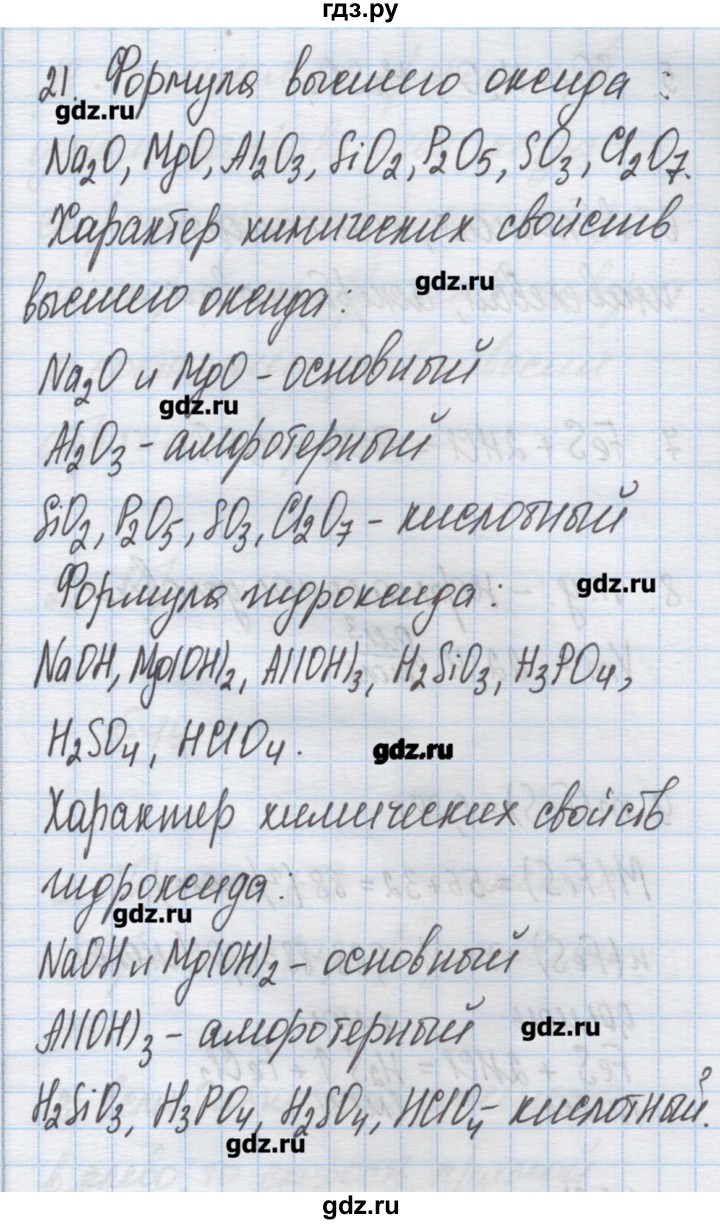 гдз.ру
21. Формула высшего оксида:
gdz.ru
Na2O, MgO, Al2O3, SiO2, P2O5, SO3, Cl2O7.
Характер химических свойств
gdz.ru
высшего оксида:
Na2O и MgO - основный
gdz.ru
Al2O3 - амфотерный
SiO2, P2O5, SO3, Cl2O7 - кислотный
gdz.ru
Формула гидроксида:
NaOH, Mg(OH)2, Al(OH)3, H2SiO3, H3PO4,
H2SO4, HClO4.
gdz.ru
Характер химических свойств
гидроксида:
gdz.ru
NaOH и Mg(OH)2 - основный
Al(OH)3 - амфотерный
gdz.ru
H2SiO3, H3PO4, H2SO4, HClO4 - кислотный.
gdz.ru
gdz.ru